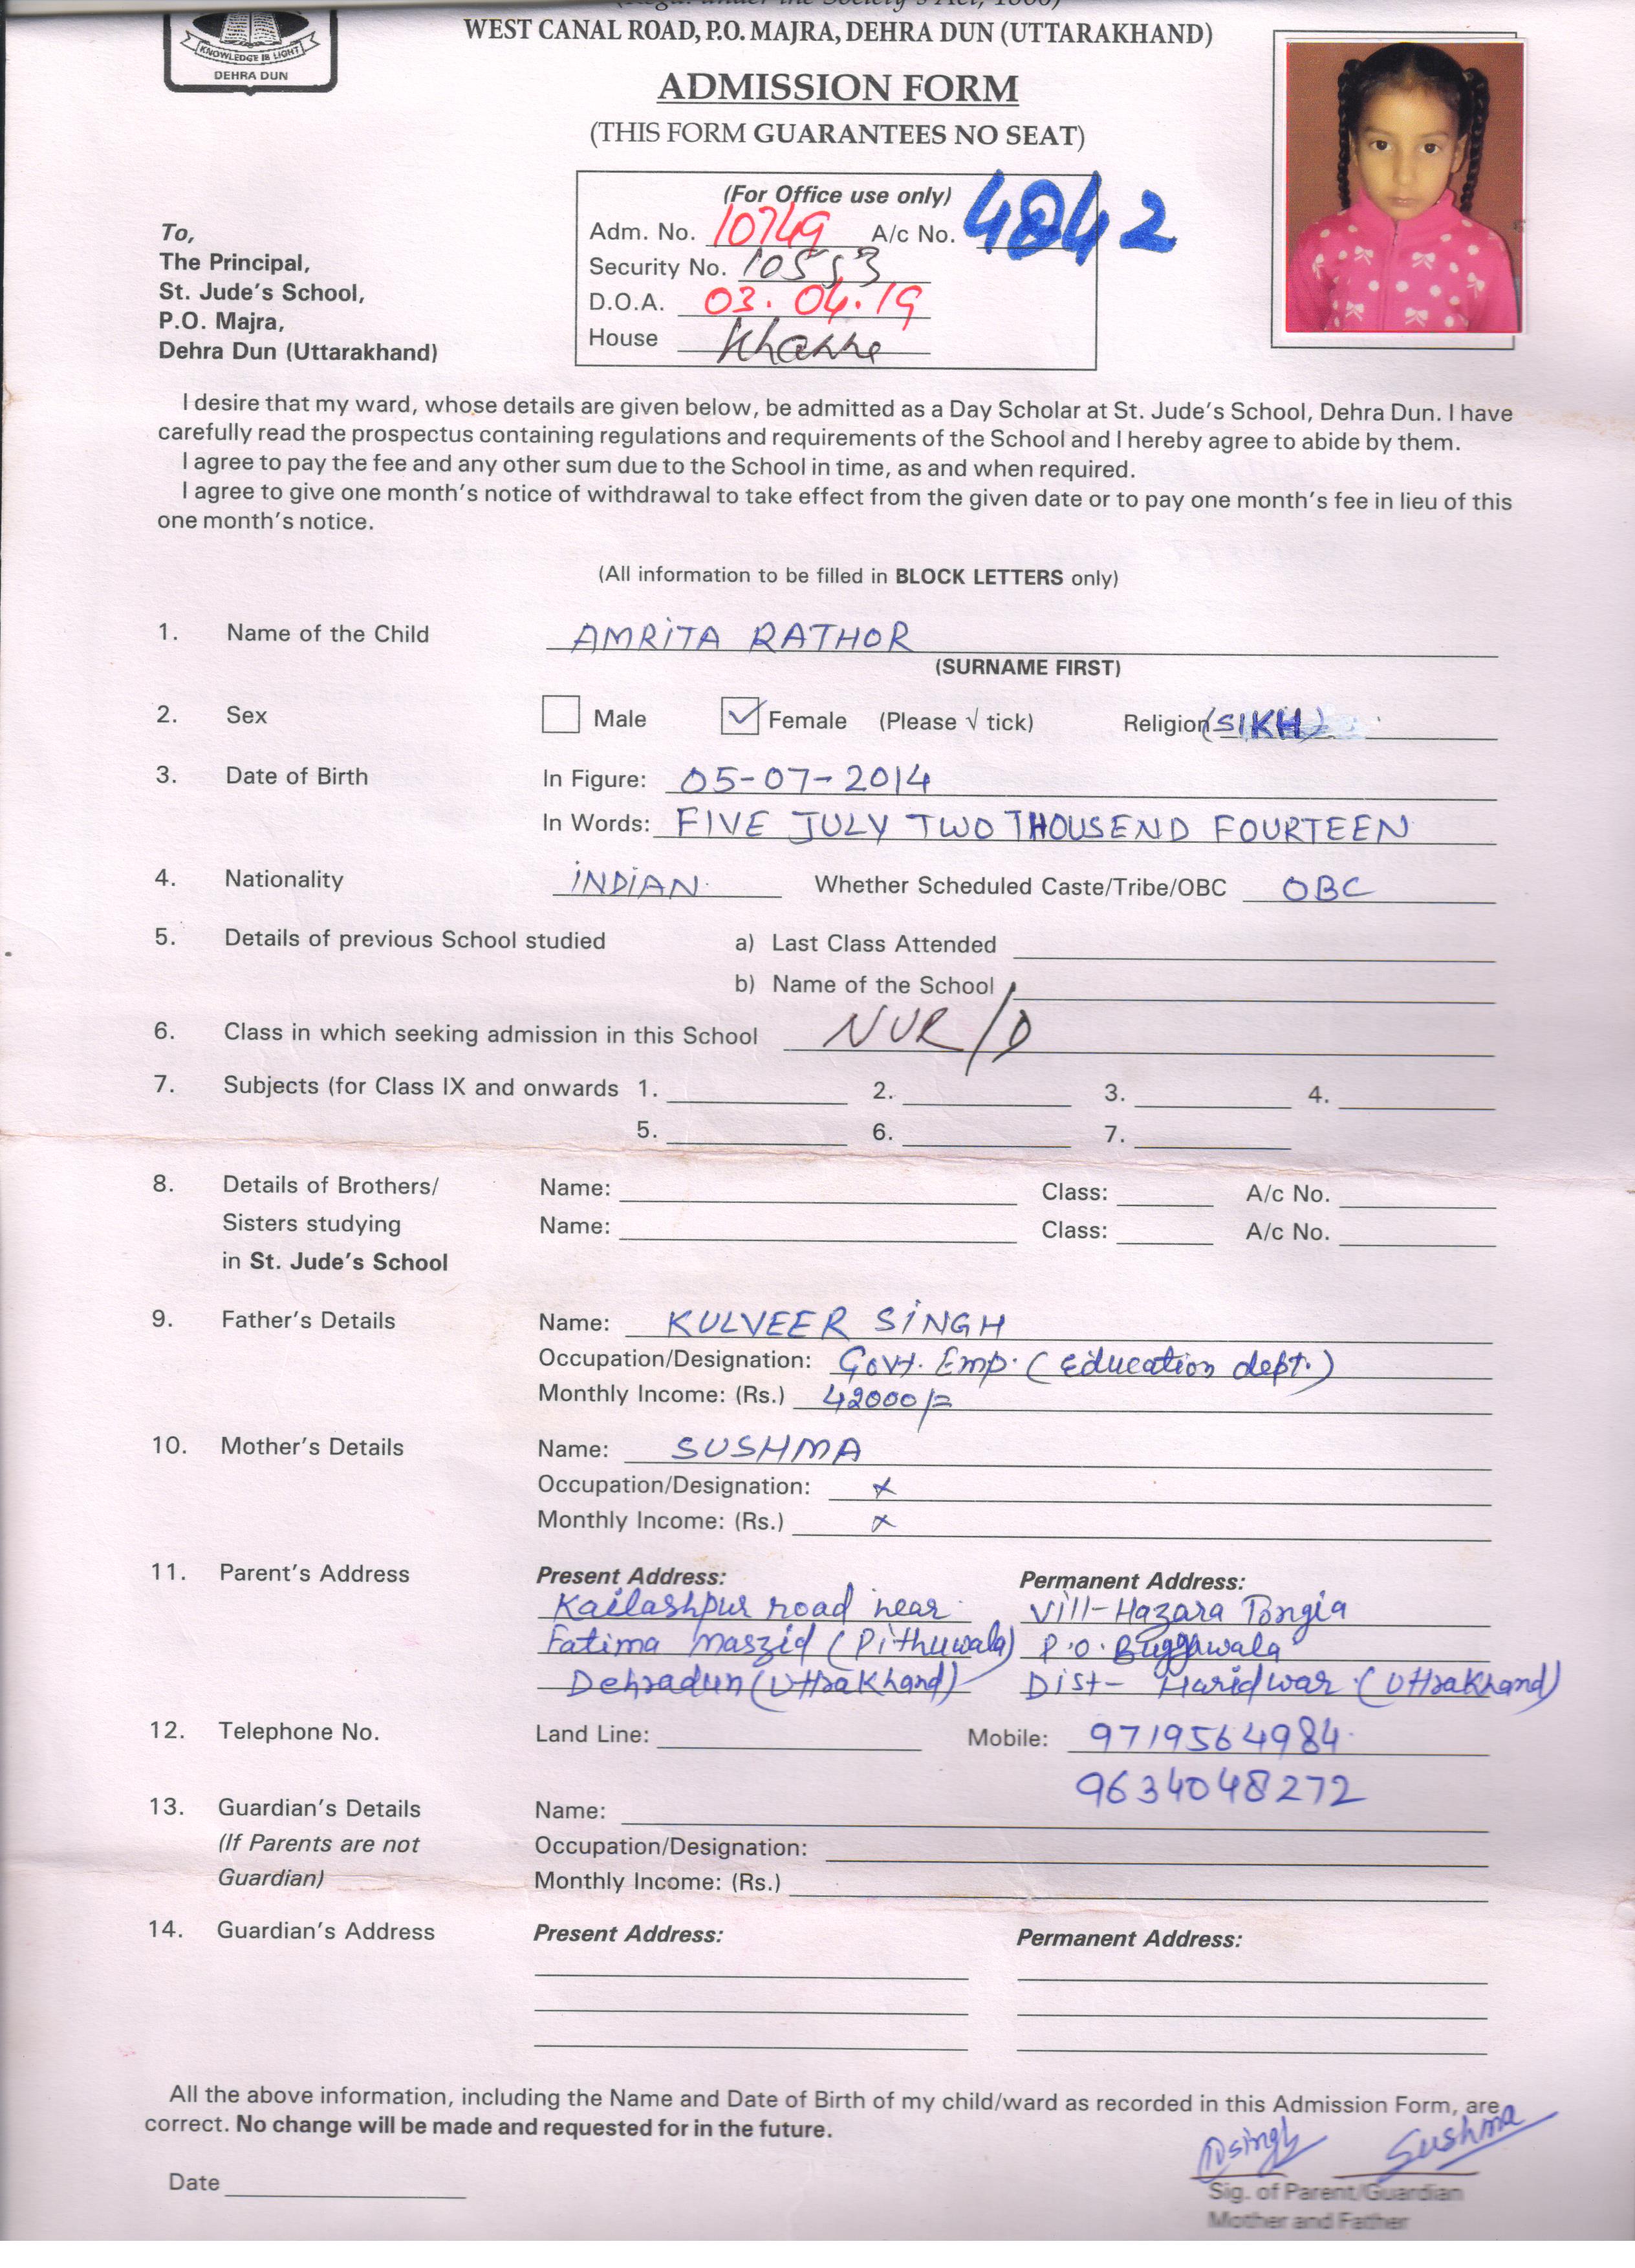 WEST CANAL ROAD, P.O. MAJRA, DEHRA DUN (UTTARAKHAND)
KNOWLEDGE IS LIGHT
DEHRA DUN
ADMISSION FORM
(THIS FORM GUARANTEES NO SEAT)
(For Office use only)
Adm. No. 10749 A/c No. 4842
Security No. 10553
D.O.A. 03.04.19
House
To,
The Principal,
St. Jude's School,
P.O. Majra,
Dehra Dun (Uttarakhand)
I desire that my ward, whose details are given below, be admitted as a Day Scholar at St. Jude's School, Dehra Dun. I have
carefully read the prospectus containing regulations and requirements of the School and I hereby agree to abide by them.
I agree to pay the fee and any other sum due to the School in time, as and when required.
I agree to give one month's notice of withdrawal to take effect from the given date or to pay one month's fee in lieu of this
one month's notice.
(All information to be filled in BLOCK LETTERS only)
1. Name of the Child AMRITA RATHOR
(SURNAME FIRST)
2. Sex Male Female (Please √ tick) Religion (SIKH)
3. Date of Birth In Figure: 05-07-2014
In Words: FIVE JULY TWO THOUSEND FOURTEEN
4. Nationality INDIAN Whether Scheduled Caste/Tribe/OBC OBC
5. Details of previous School studied a) Last Class Attended
b) Name of the School
6. Class in which seeking admission in this School NUR/D
7. Subjects (for Class IX and onwards 1. 2. 3. 4.
5. 6. 7.
8. Details of Brothers/ Name: Class: A/c No.
Sisters studying Name: Class: A/c No.
in St. Jude's School
9. Father's Details Name: KULVEER SINGH
Occupation/Designation: Govt. Emp. (Education dept.)
Monthly Income: (Rs.) 42000/=
10. Mother's Details Name: SUSHMA
Occupation/Designation: x
Monthly Income: (Rs.) x
11. Parent's Address Present Address: Permanent Address:
Kailashpur road near Vill-Hazara Tongia
Fatima maszid (Pithuwala) P.O. Buggawala
Dehradun (Uttrakhand) Dist- Haridwar (Uttrakhand)
12. Telephone No. Land Line: Mobile: 9719564984
9634048272
13. Guardian's Details Name:
(If Parents are not Occupation/Designation:
Guardian) Monthly Income: (Rs.)
14. Guardian's Address Present Address: Permanent Address:
All the above information, including the Name and Date of Birth of my child/ward as recorded in this Admission Form, are
correct. No change will be made and requested for in the future.
Sushma
Date
Sig. of Parent/Guardian
Mother and Father